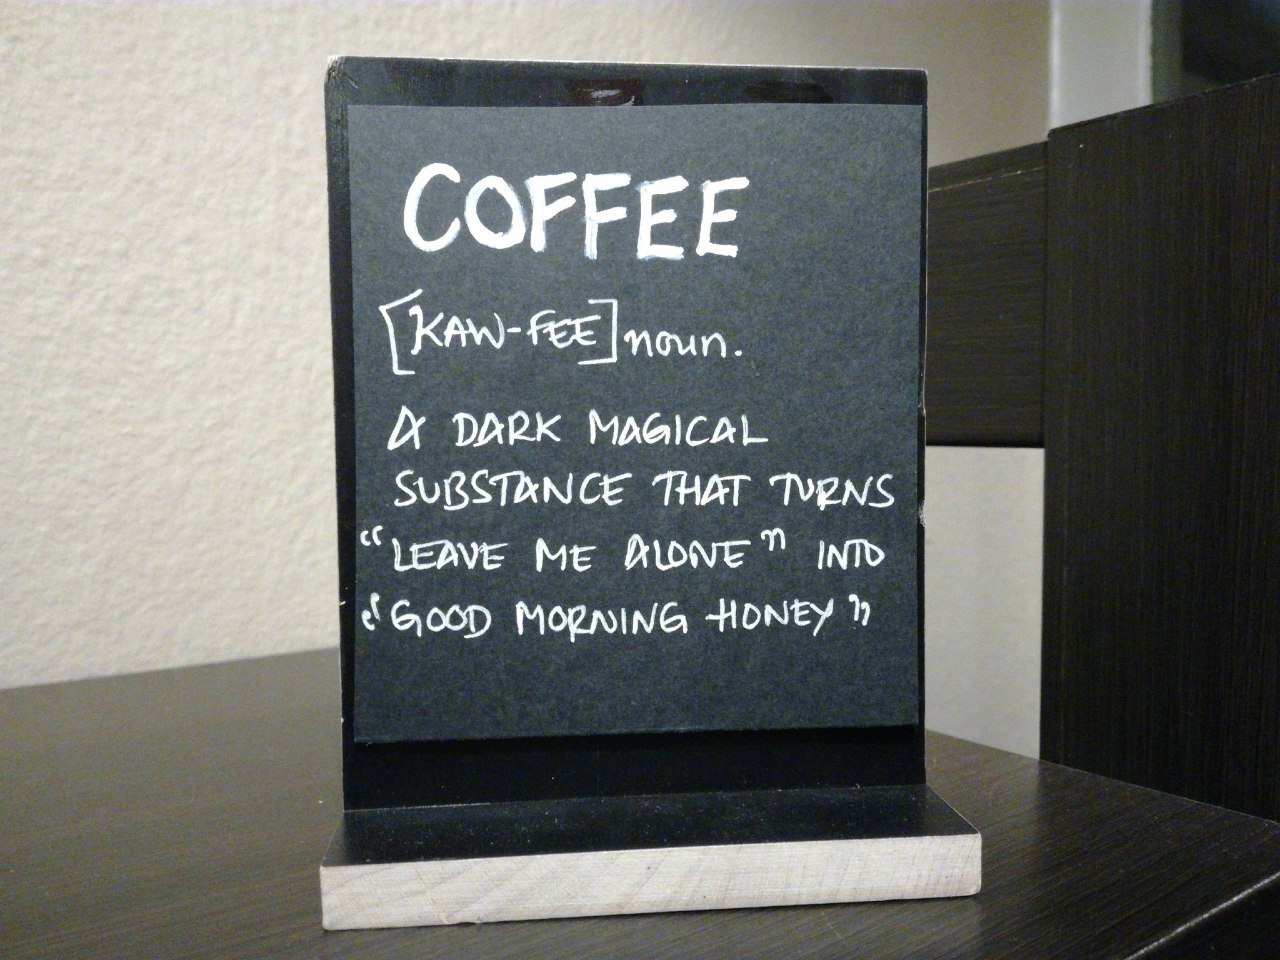 COFFEE
[KAW-FEE] noun.
A DARK MAGICAL
SUBSTANCE THAT TURNS
"LEAVE ME ALONE" INTO
"GOOD MORNING HONEY"